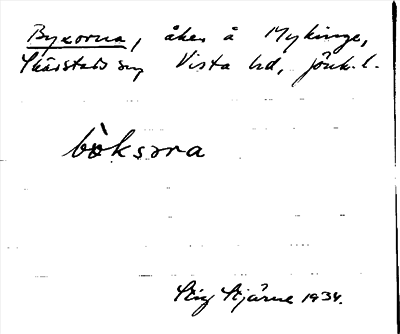 Byxorna, åker å Mykinge,
Skärstads sn, Vista hd, Jönk. l.
bòksɔrna
Stig Stjärne 1934.